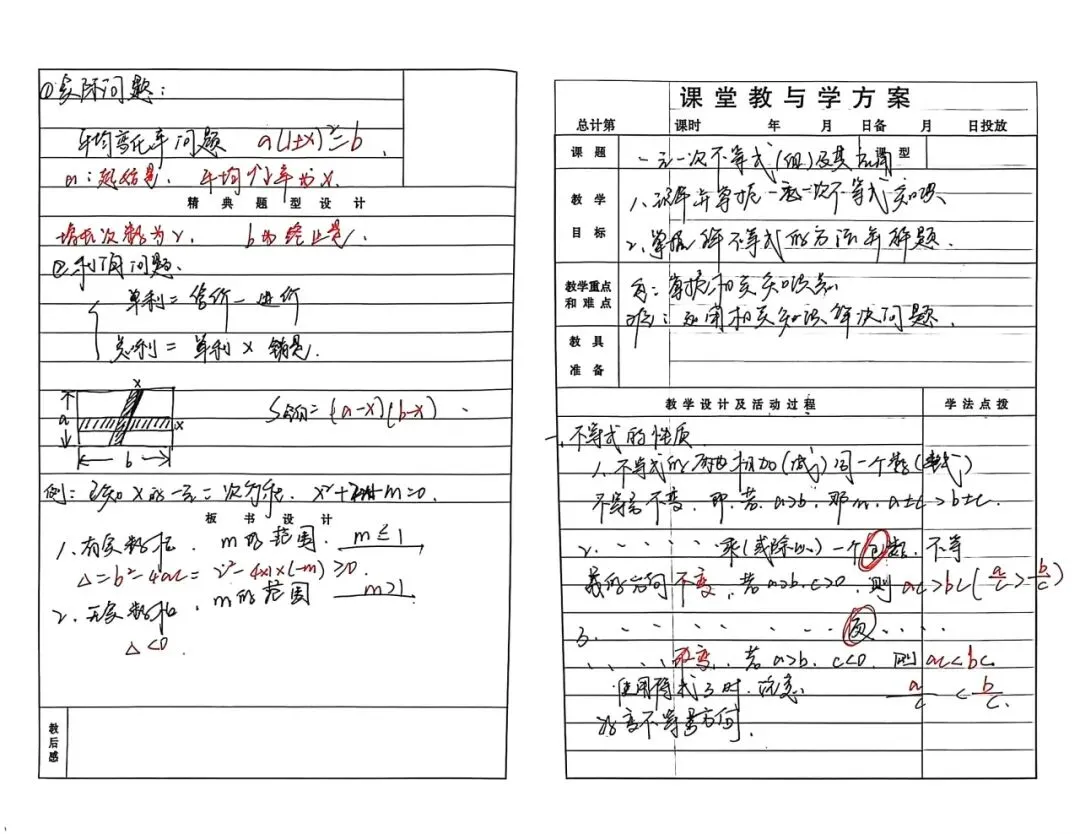 ①实际问题：
平均变化率问题 a(1±x)²=b.
a：起始量. 平均变化率为x.
精典题型设计
增长次数为2. b为终止量.
②利润问题.
单利=售价-进价
总利=单利×销量.
x
a
x
b
S阴=(a-x)(b-x).
例：已知x的一元二次方程. x²+2x+m=0.
板书设计
1.有实数根. m的范围. m≤1
△=b²-4ac=2²-4×1×(-m)≥0.
2.无实数根. m的范围 m>1
△<0.
教后感
课堂教与学方案
总计第 课时 年 月 日备 月 日投放
课题 一元一次不等式(组)及其应用 课型
教学目标
1.理解并掌握一元一次不等式知识.
2.掌握解不等式的方法并解题.
教学重点和难点
重：掌握相关知识点
难：运用相关知识解决问题.
教具准备
教学设计及活动过程 学法点拨
一.不等式的性质.
1.不等式的两边加(减)同一个数(整式)
不等号不变. 即.若a>b.那么.a±c>b±c.
2. 、、、、、 乘(或除以)一个正数.不等
号的方向不变.若a>b.c>0.则ac>bc(a/c>b/c)
3. 、、、、、、、负、、、、
、、、、改变.若a>b.c<0.则ac<bc
使用性质3时.注意 a/c<b/c.
改变不等号方向.